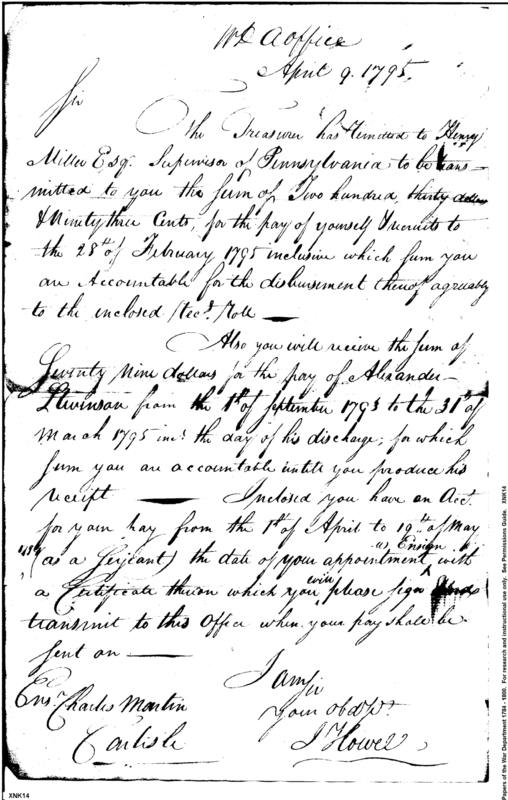 Wr. D. A office
April 9. 1795.
Sir
The Treasurer has remitted to Henry
Miller Esq. Supervisor of Pennsylvania to be trans-
mitted to you the sum of Two hundred, thirty dollars
& Ninety three Cents, for the pay of yourself & recruits to
the 28th of February 1795 inclusive which sum you
are Accountable for the disbursement thereof agreeably
to the inclosed Rec.t Roll —
Also you will receive the sum of
Seventy Nine dollars for the pay of Alexander
from the 1st of September 1793 to the 31st of
March 1795 inc.s the day of his discharge; for which
sum you are accountable untill you produce his
receipt — Inclosed you have an Acct.
for your pay from the 1st of April to 19th of May
(as a Serjeant) the date of your appointment as Ensign with
a Certificate thereon which you will please sign and
transmit to this Office when your pay shall be
sent on —
I am Sir
your Obd. St.
J Howell
Ens.n Charles Martin
Carlisle
XNK14
Papers of the War Department 1784 - 1800. For research and instructional use only. See Permissions Guide. XNK14